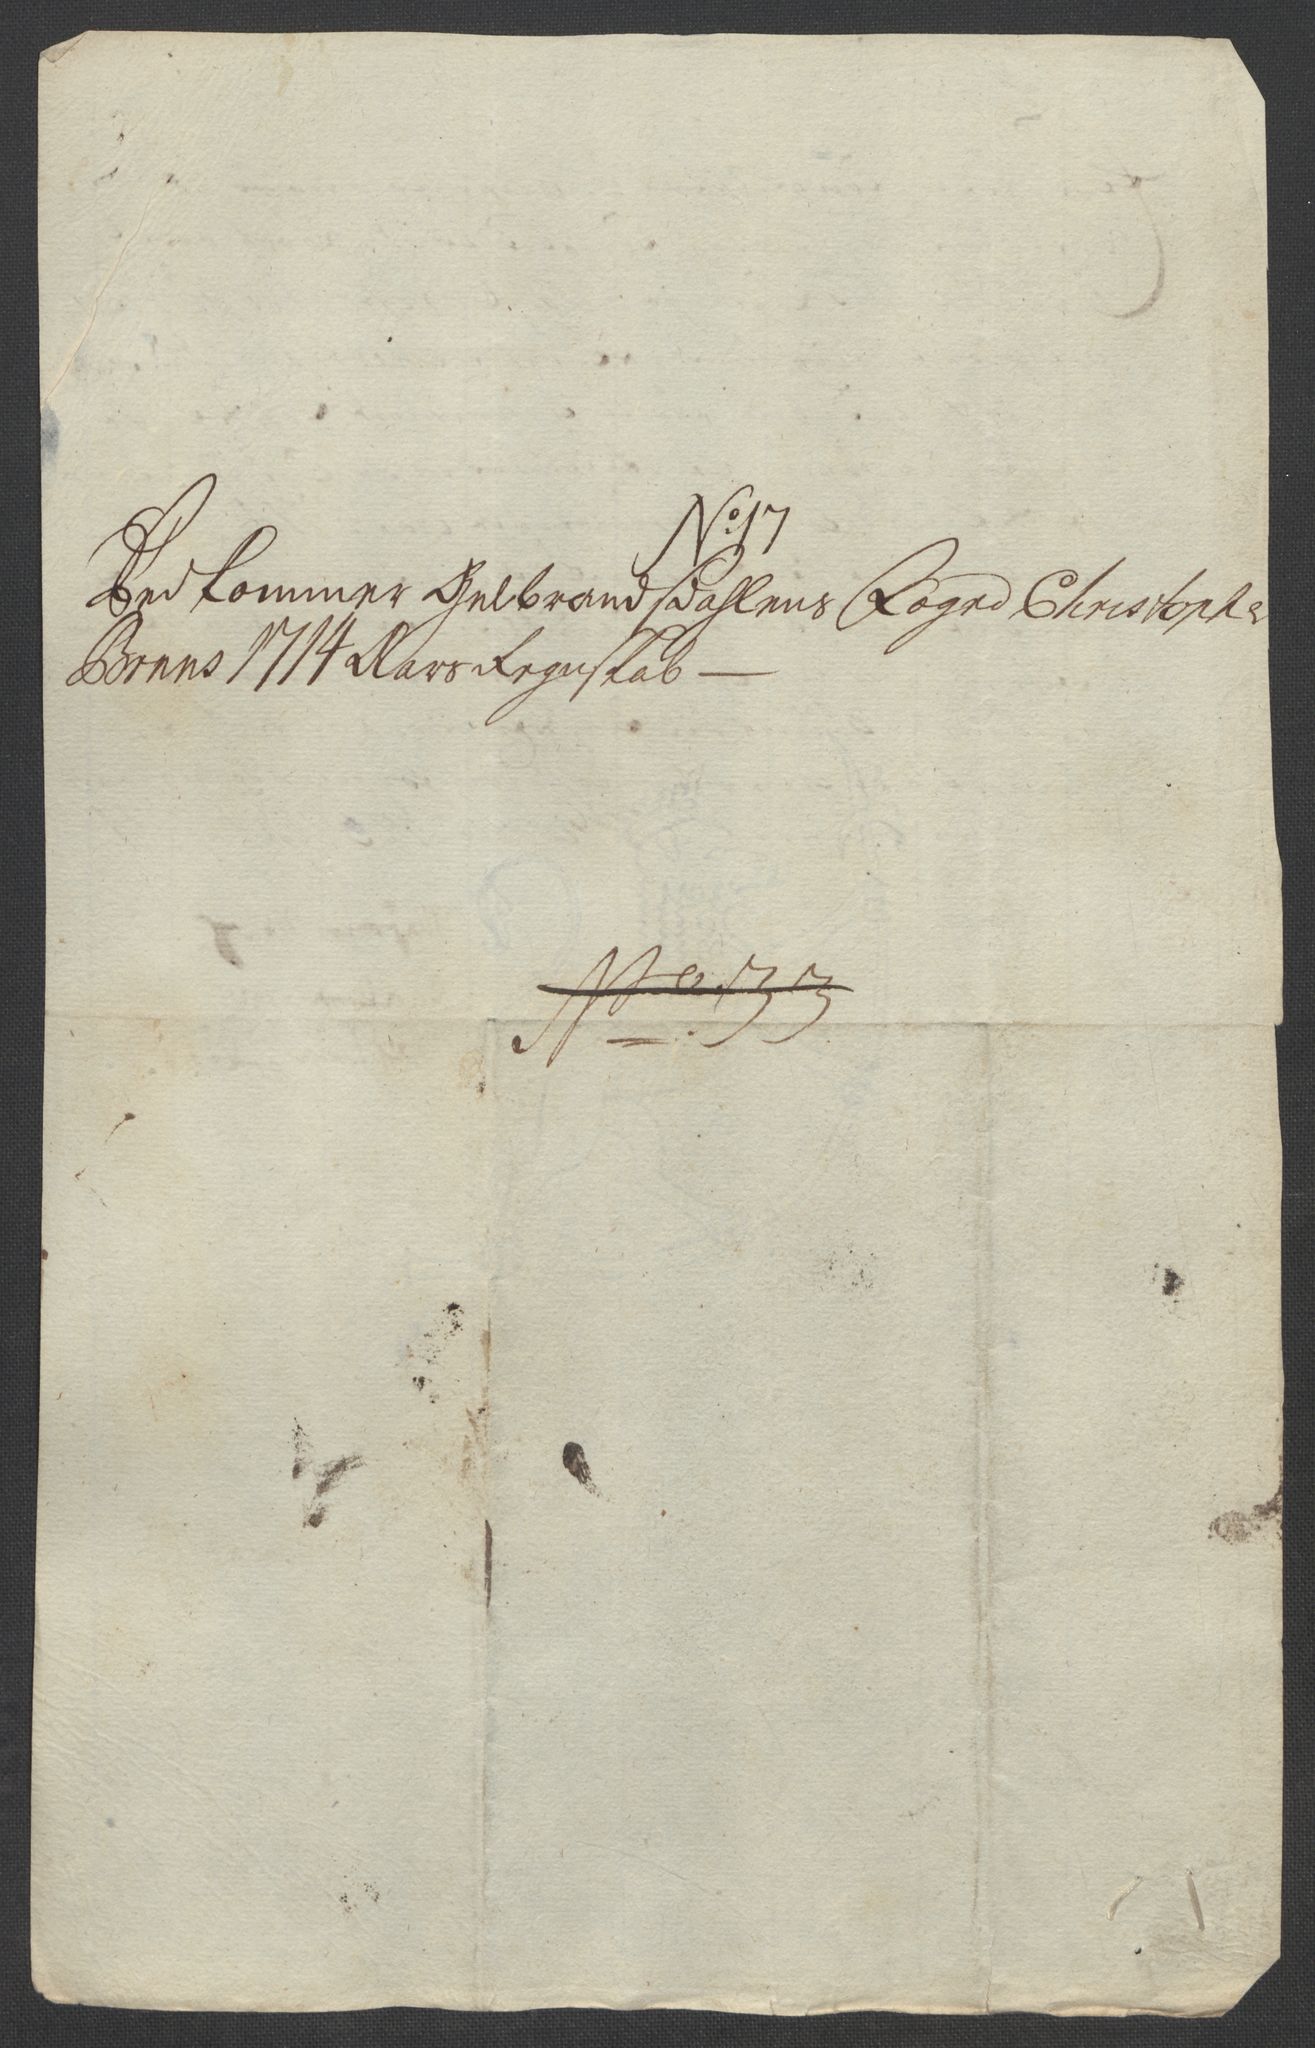 No 17
Vedkommer Gulbrandsdahlens Foged Christopher
Bruns 1714 Aars Regnskab —
No. 33